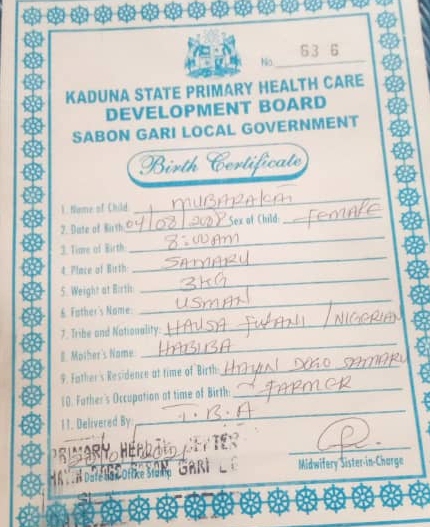 No. 636
KADUNA STATE PRIMARY HEALTH CARE
DEVELOPMENT BOARD
SABON GARI LOCAL GOVERNMENT
Birth Certificate
1. Name of Child: MUBARAKAI
2. Date of Birth: 04/08/2008 Sex of Child: FEMALE
3. Time of Birth: 8:00AM
4. Place of Birth: SAMARU
5. Weight at Birth: 3KG
6. Father's Name: USMAN
7. Tribe and Nationality: HAUSA FULANI / NIGERIAN
8. Mother's Name: HABIBA
9. Father's Residence at time of Birth: HAYIN DOGO SAMARU
10. Father's Occupation at time of Birth: FARMER
11. Delivered By: T.B.A
PRIMARY HEALTH
Date and Office Stamp
SABON GARI
Midwifery Sister-in-Charge